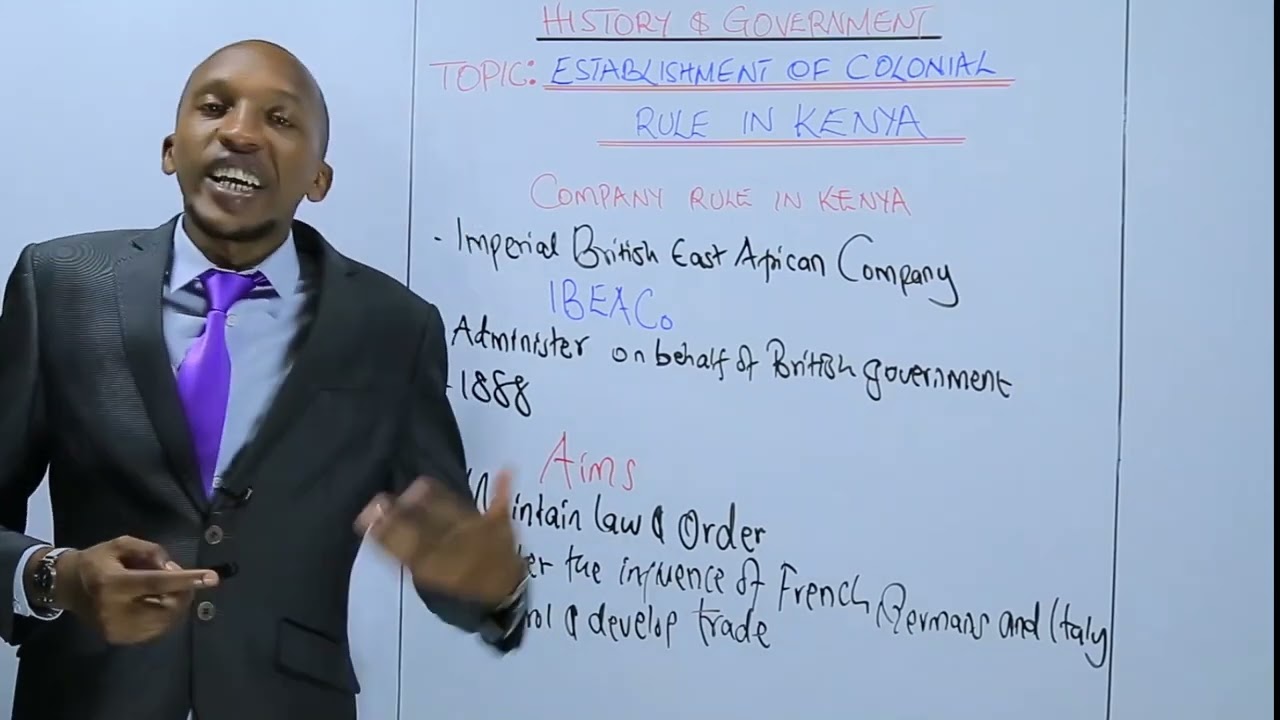 HISTORY & GOVERNMENT
TOPIC: ESTABLISHMENT OF COLONIAL
RULE IN KENYA
COMPANY RULE IN KENYA
- Imperial British East African Company
IBEACo
Administer on behalf of British government
- 1888
Aims
Maintain law & Order
the influence of French, Germans and Italy
& develop trade